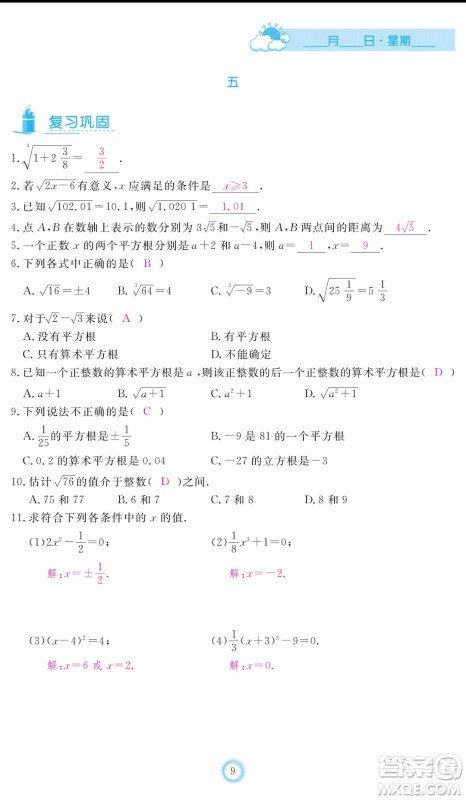 ____月____日·星期____
五
复习巩固
1. ∛(1+2 3/8) = 3/2 .
2. 若√(2x-6)有意义,x 应满足的条件是 x≥3 .
3. 已知√102.01=10.1,则√1.020 1= 1.01 .
4. 点 A,B 在数轴上表示的数分别为 3√5和-√5,则 A,B 两点间的距离为 4√5 .
5. 一个正数 x 的两个平方根分别是 a+2 和 a-4,则 a= 1 ,x= 9 .
6. 下列各式中正确的是( B )
A. √16=±4 B. ∛64=4 C. ∛-9=3 D. √(25 1/9)=5 1/3
7. 对于√2-√3来说( A )
A. 没有平方根 B. 有平方根
C. 只有算术平方根 D. 不能确定
8. 已知一个正整数的算术平方根是 a,则该正整数的后一个正整数的算术平方根是( D )
A. a+1 B. √(a+1) C. a²+1 D. √(a²+1)
9. 下列说法不正确的是( C )
A. 1/25的平方根是±1/5 B. -9 是 81 的一个平方根
C. 0.2 的算术平方根是 0.04 C. -27 的立方根是-3
10. 估计√76的值介于整数( D )之间.
A. 75 和 77 B. 6 和 7 C. 7 和 8 D. 8 和 9
11. 求符合下列各条件中的 x 的值.
(1)2x²-1/2=0; (2)1/8x³+1=0;
解:x=±1/2. 解:x=-2.
(3)(x-4)²=4; (4)1/3(x+3)³-9=0.
解:x=6 或 x=2. 解:x=0.
9
答案圈